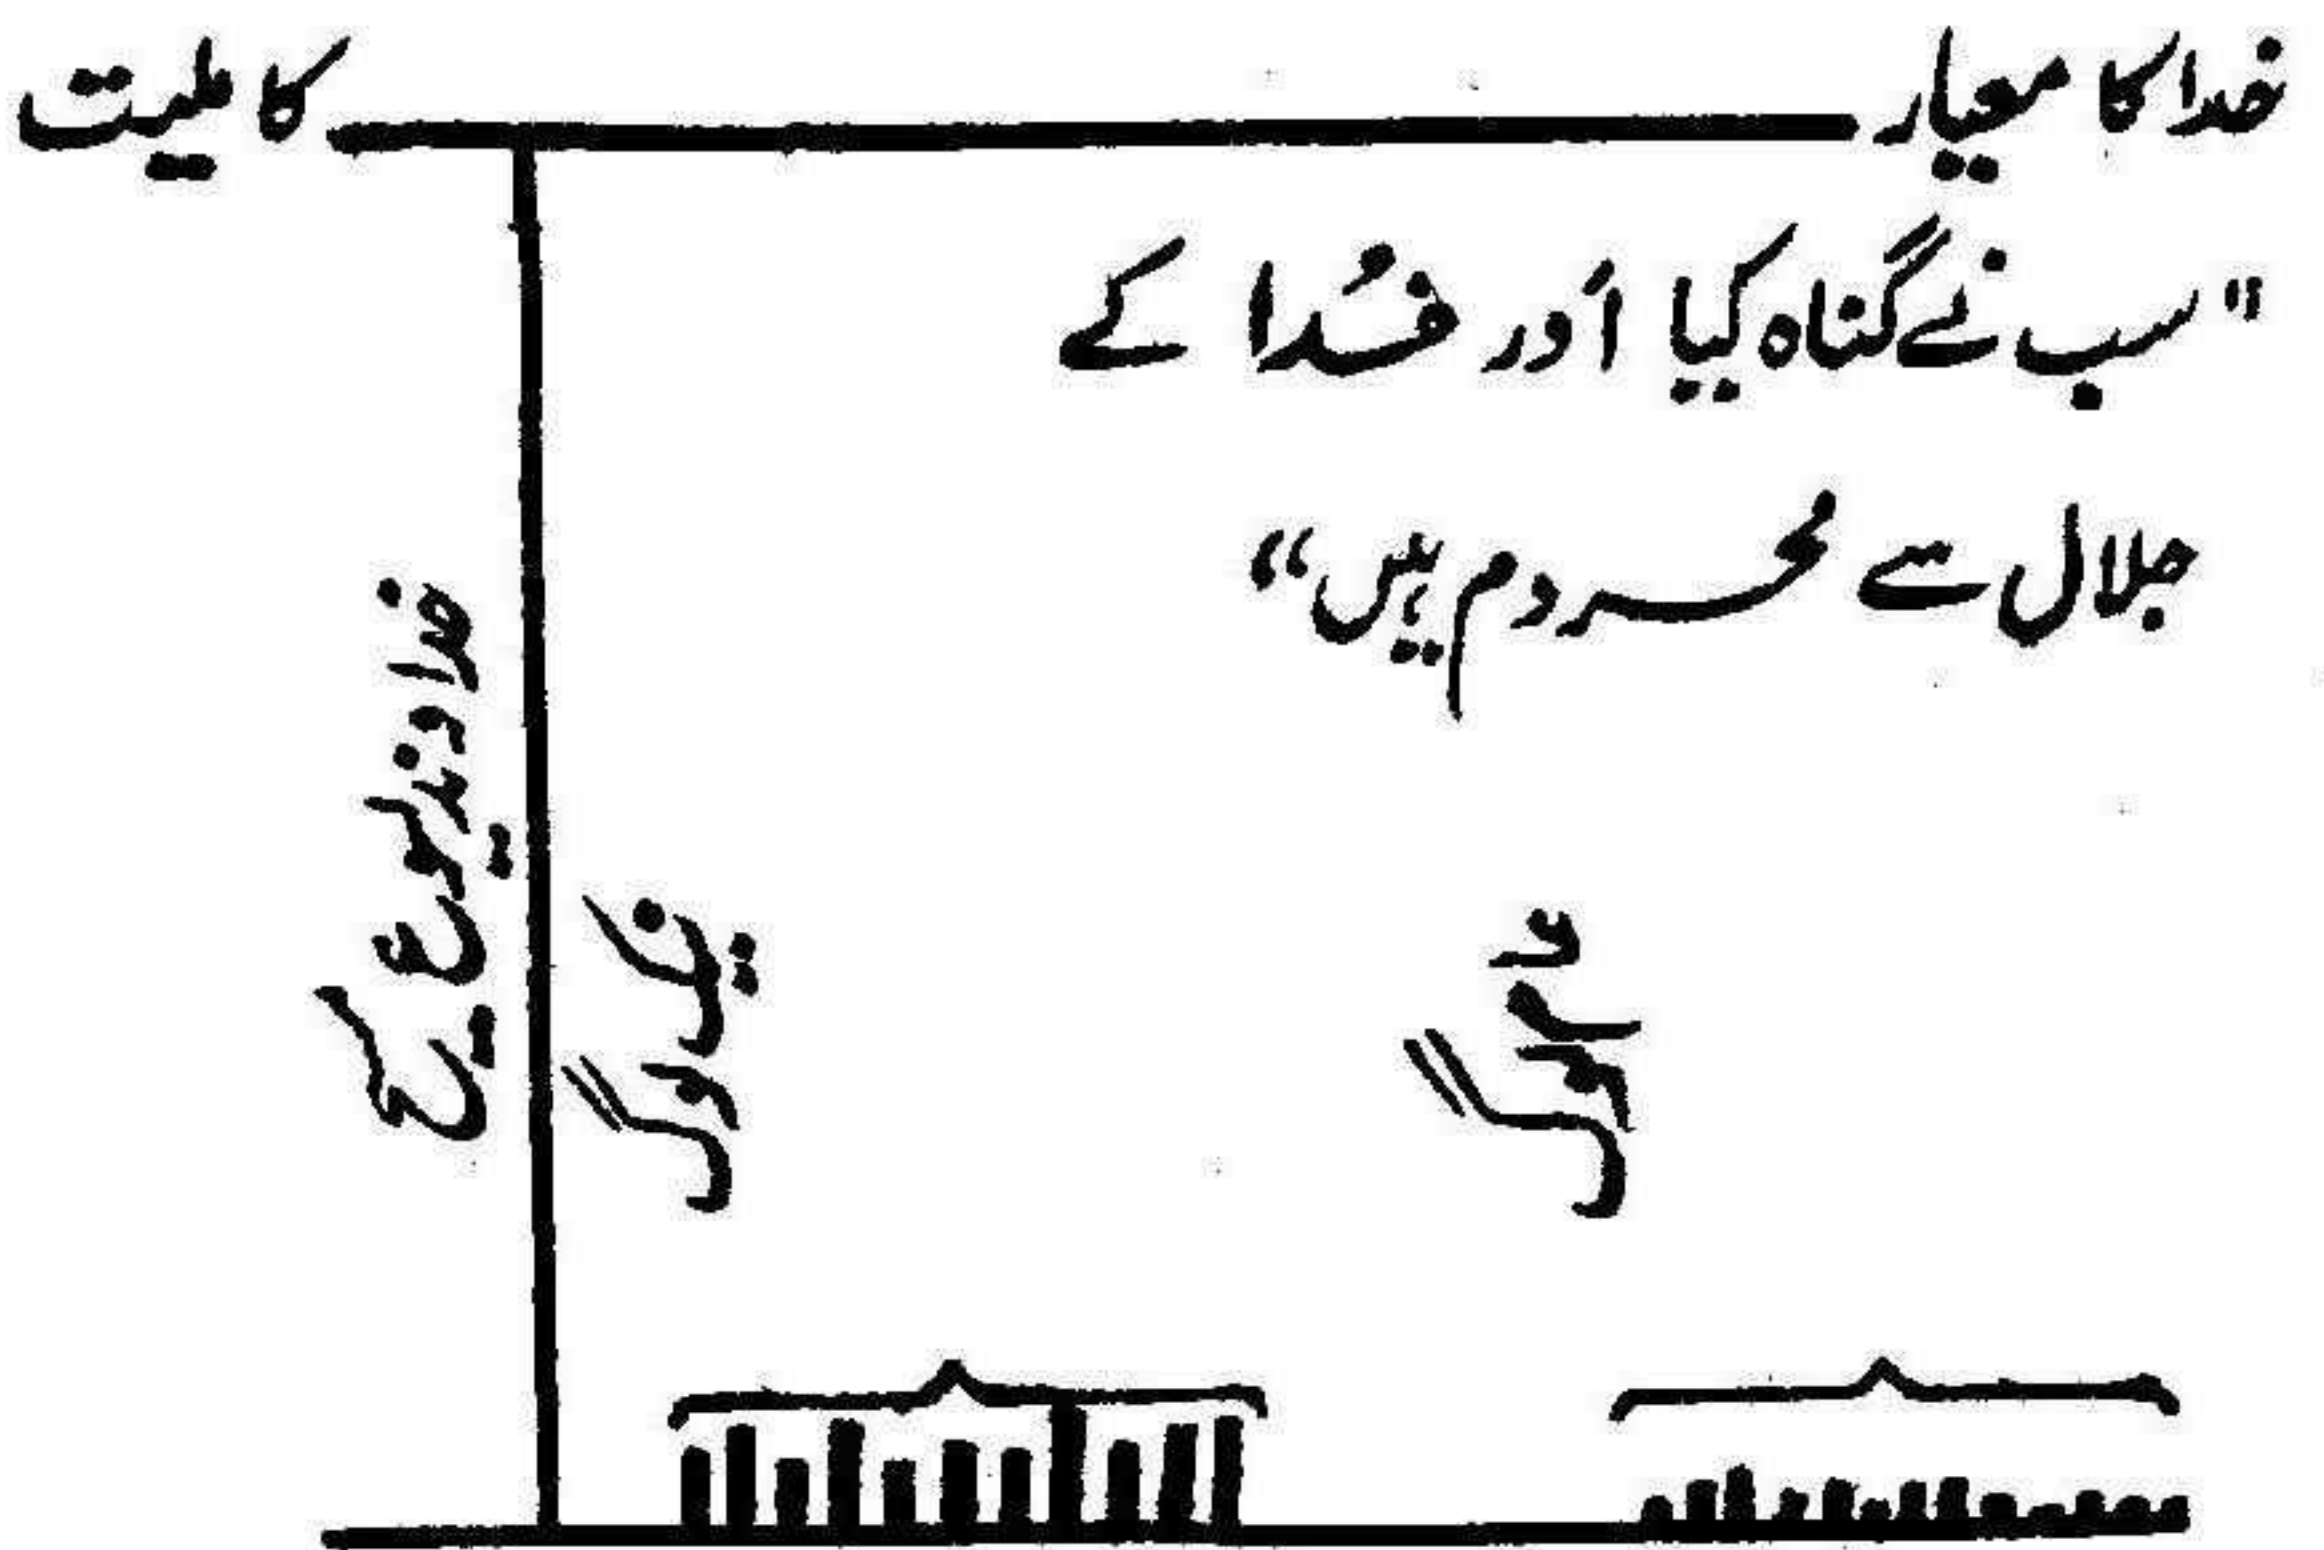 خدا کا معیار
کاملیت
"سب نے گناہ کیا اَور خُدا کے
جلال سے محروم ہیں“
خداوند یسوع مسیح
نیک لوگ
عام لوگ